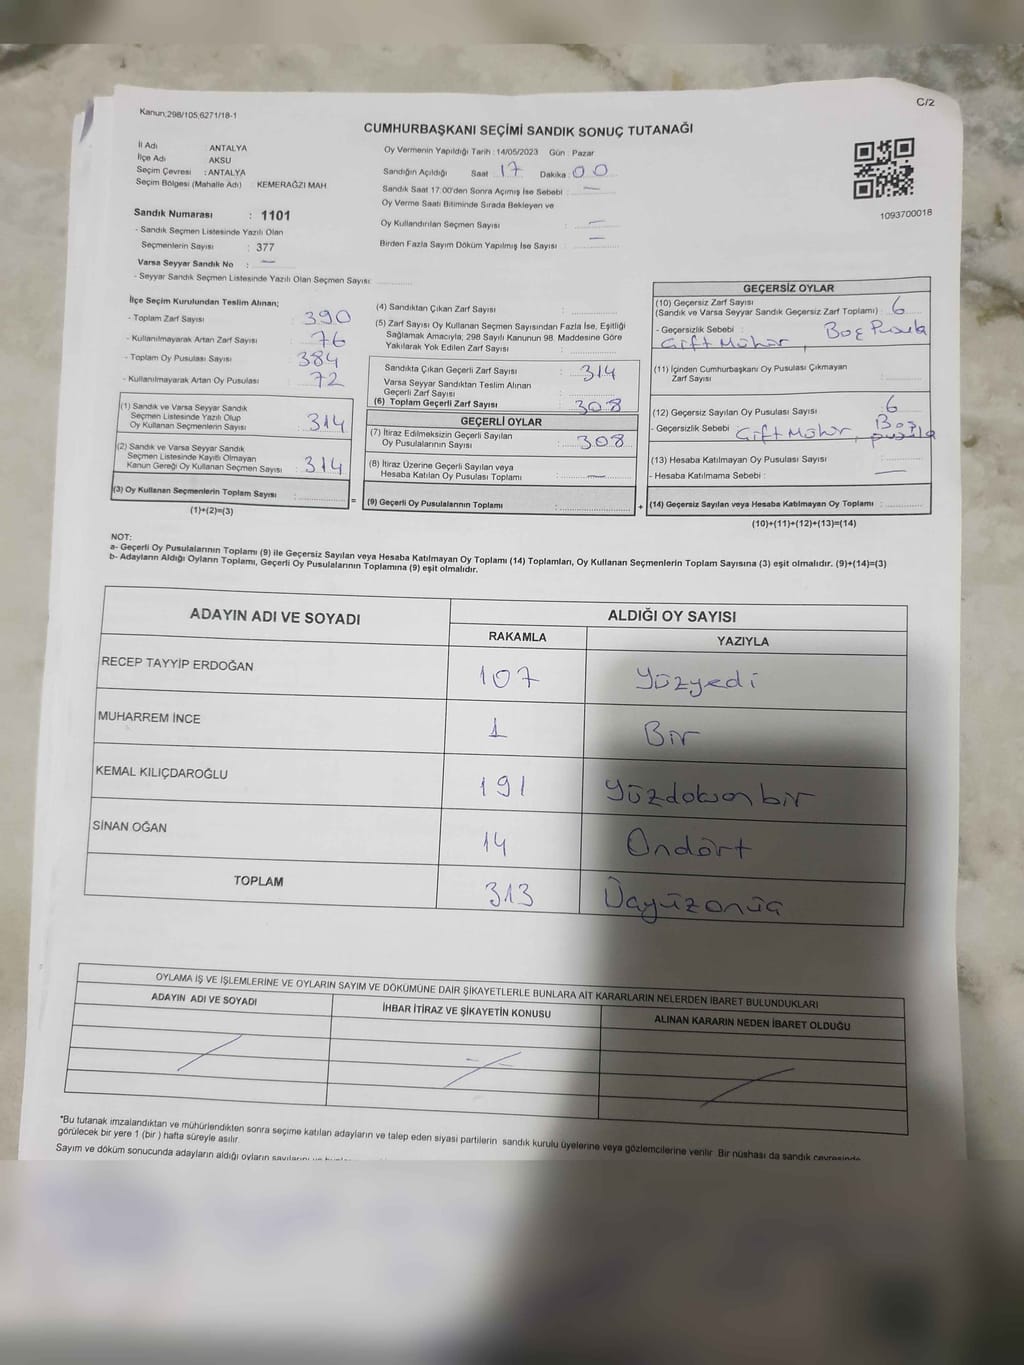 Kanun;298/105;6271/18-1
C/2
CUMHURBAŞKANI SEÇİMİ SANDIK SONUÇ TUTANAĞI
İl Adı ANTALYA
İlçe Adı AKSU
Seçim Çevresi : ANTALYA
Seçim Bölgesi (Mahalle Adı) : KEMERAĞZI MAH
Sandık Numarası : 1101
- Sandık Seçmen Listesinde Yazılı Olan
Seçmenlerin Sayısı : 377
Varsa Seyyar Sandık No : —
- Seyyar Sandık Seçmen Listesinde Yazılı Olan Seçmen Sayısı:
Oy Vermenin Yapıldığı Tarih : 14/05/2023 Gün : Pazar
Sandığın Açıldığı Saat : 17 Dakika : 00
Sandık Saat 17:00'den Sonra Açımış İse Sebebi : —
Oy Verme Saati Bitiminde Sırada Bekleyen ve
Oy Kullandırılan Seçmen Sayısı : —
Birden Fazla Sayım Döküm Yapılmış İse Sayısı : —
1093700018
İlçe Seçim Kurulundan Teslim Alınan;
- Toplam Zarf Sayısı : 390
- Kullanılmayarak Artan Zarf Sayısı : 76
- Toplam Oy Pusulası Sayısı : 384
- Kullanılmayarak Artan Oy Pusulası : 72
(1) Sandık ve Varsa Seyyar Sandık
Seçmen Listesinde Yazılı Olup
Oy Kullanan Seçmenlerin Sayısı : 314
(2) Sandık ve Varsa Seyyar Sandık
Seçmen Listesinde Kayıtlı Olmayan
Kanun Gereği Oy Kullanan Seçmen Sayısı : 314
(3) Oy Kullanan Seçmenlerin Toplam Sayısı :
(1)+(2)=(3)
=
(4) Sandıktan Çıkan Zarf Sayısı :
(5) Zarf Sayısı Oy Kullanan Seçmen Sayısından Fazla İse, Eşitliği
Sağlamak Amacıyla; 298 Sayılı Kanunun 98. Maddesine Göre
Yakılarak Yok Edilen Zarf Sayısı :
Sandıkta Çıkan Geçerli Zarf Sayısı : 314
Varsa Seyyar Sandıktan Teslim Alınan
Geçerli Zarf Sayısı :
(6) Toplam Geçerli Zarf Sayısı : 308
GEÇERLİ OYLAR
(7) İtiraz Edilmeksizin Geçerli Sayılan
Oy Pusulalarının Sayısı : 308
(8) İtiraz Üzerine Geçerli Sayılan veya
Hesaba Katılan Oy Pusulası Toplamı : —
(9) Geçerli Oy Pusulalarının Toplamı :
+
GEÇERSİZ OYLAR
(10) Geçersiz Zarf Sayısı
(Sandık ve Varsa Seyyar Sandık Geçersiz Zarf Toplamı) : 6
- Geçersizlik Sebebi : Boş Pusula
Çift Mühür,
(11) İçinden Cumhurbaşkanı Oy Pusulası Çıkmayan
Zarf Sayısı :
(12) Geçersiz Sayılan Oy Pusulası Sayısı : 6
- Geçersizlik Sebebi : Çift Mühür, Boş pusula
(13) Hesaba Katılmayan Oy Pusulası Sayısı :
- Hesaba Katılmama Sebebi : —
(14) Geçersiz Sayılan veya Hesaba Katılmayan Oy Toplamı :
(10)+(11)+(12)+(13)=(14)
NOT:
a- Geçerli Oy Pusulalarının Toplamı (9) ile Geçersiz Sayılan veya Hesaba Katılmayan Oy Toplamı (14) Toplamları, Oy Kullanan Seçmenlerin Toplam Sayısına (3) eşit olmalıdır. (9)+(14)=(3)
b- Adayların Aldığı Oyların Toplamı, Geçerli Oy Pusulalarının Toplamına (9) eşit olmalıdır.
ADAYIN ADI VE SOYADI
ALDIĞI OY SAYISI
RAKAMLA YAZIYLA
RECEP TAYYİP ERDOĞAN 107 Yüzyedi
MUHARREM İNCE 1 Bir
KEMAL KILIÇDAROĞLU 191 Yüzdoksanbir
SİNAN OĞAN 14 Ondört
TOPLAM 313 Üçyüzonüç
OYLAMA İŞ VE İŞLEMLERİNE VE OYLARIN SAYIM VE DÖKÜMÜNE DAİR ŞİKAYETLERLE BUNLARA AİT KARARLARIN NELERDEN İBARET BULUNDUKLARI
ADAYIN ADI VE SOYADI İHBAR İTİRAZ VE ŞİKAYETİN KONUSU ALINAN KARARIN NEDEN İBARET OLDUĞU
*Bu tutanak imzalandıktan ve mühürlendikten sonra seçime katılan adayların ve talep eden siyasi partilerin sandık kurulu üyelerine veya gözlemcilerine verilir. Bir nüshası da sandık çevresinde
görülecek bir yere 1 (bir) hafta süreyle asılır.
Sayım ve döküm sonucunda adayların aldığı oyların sayılarını